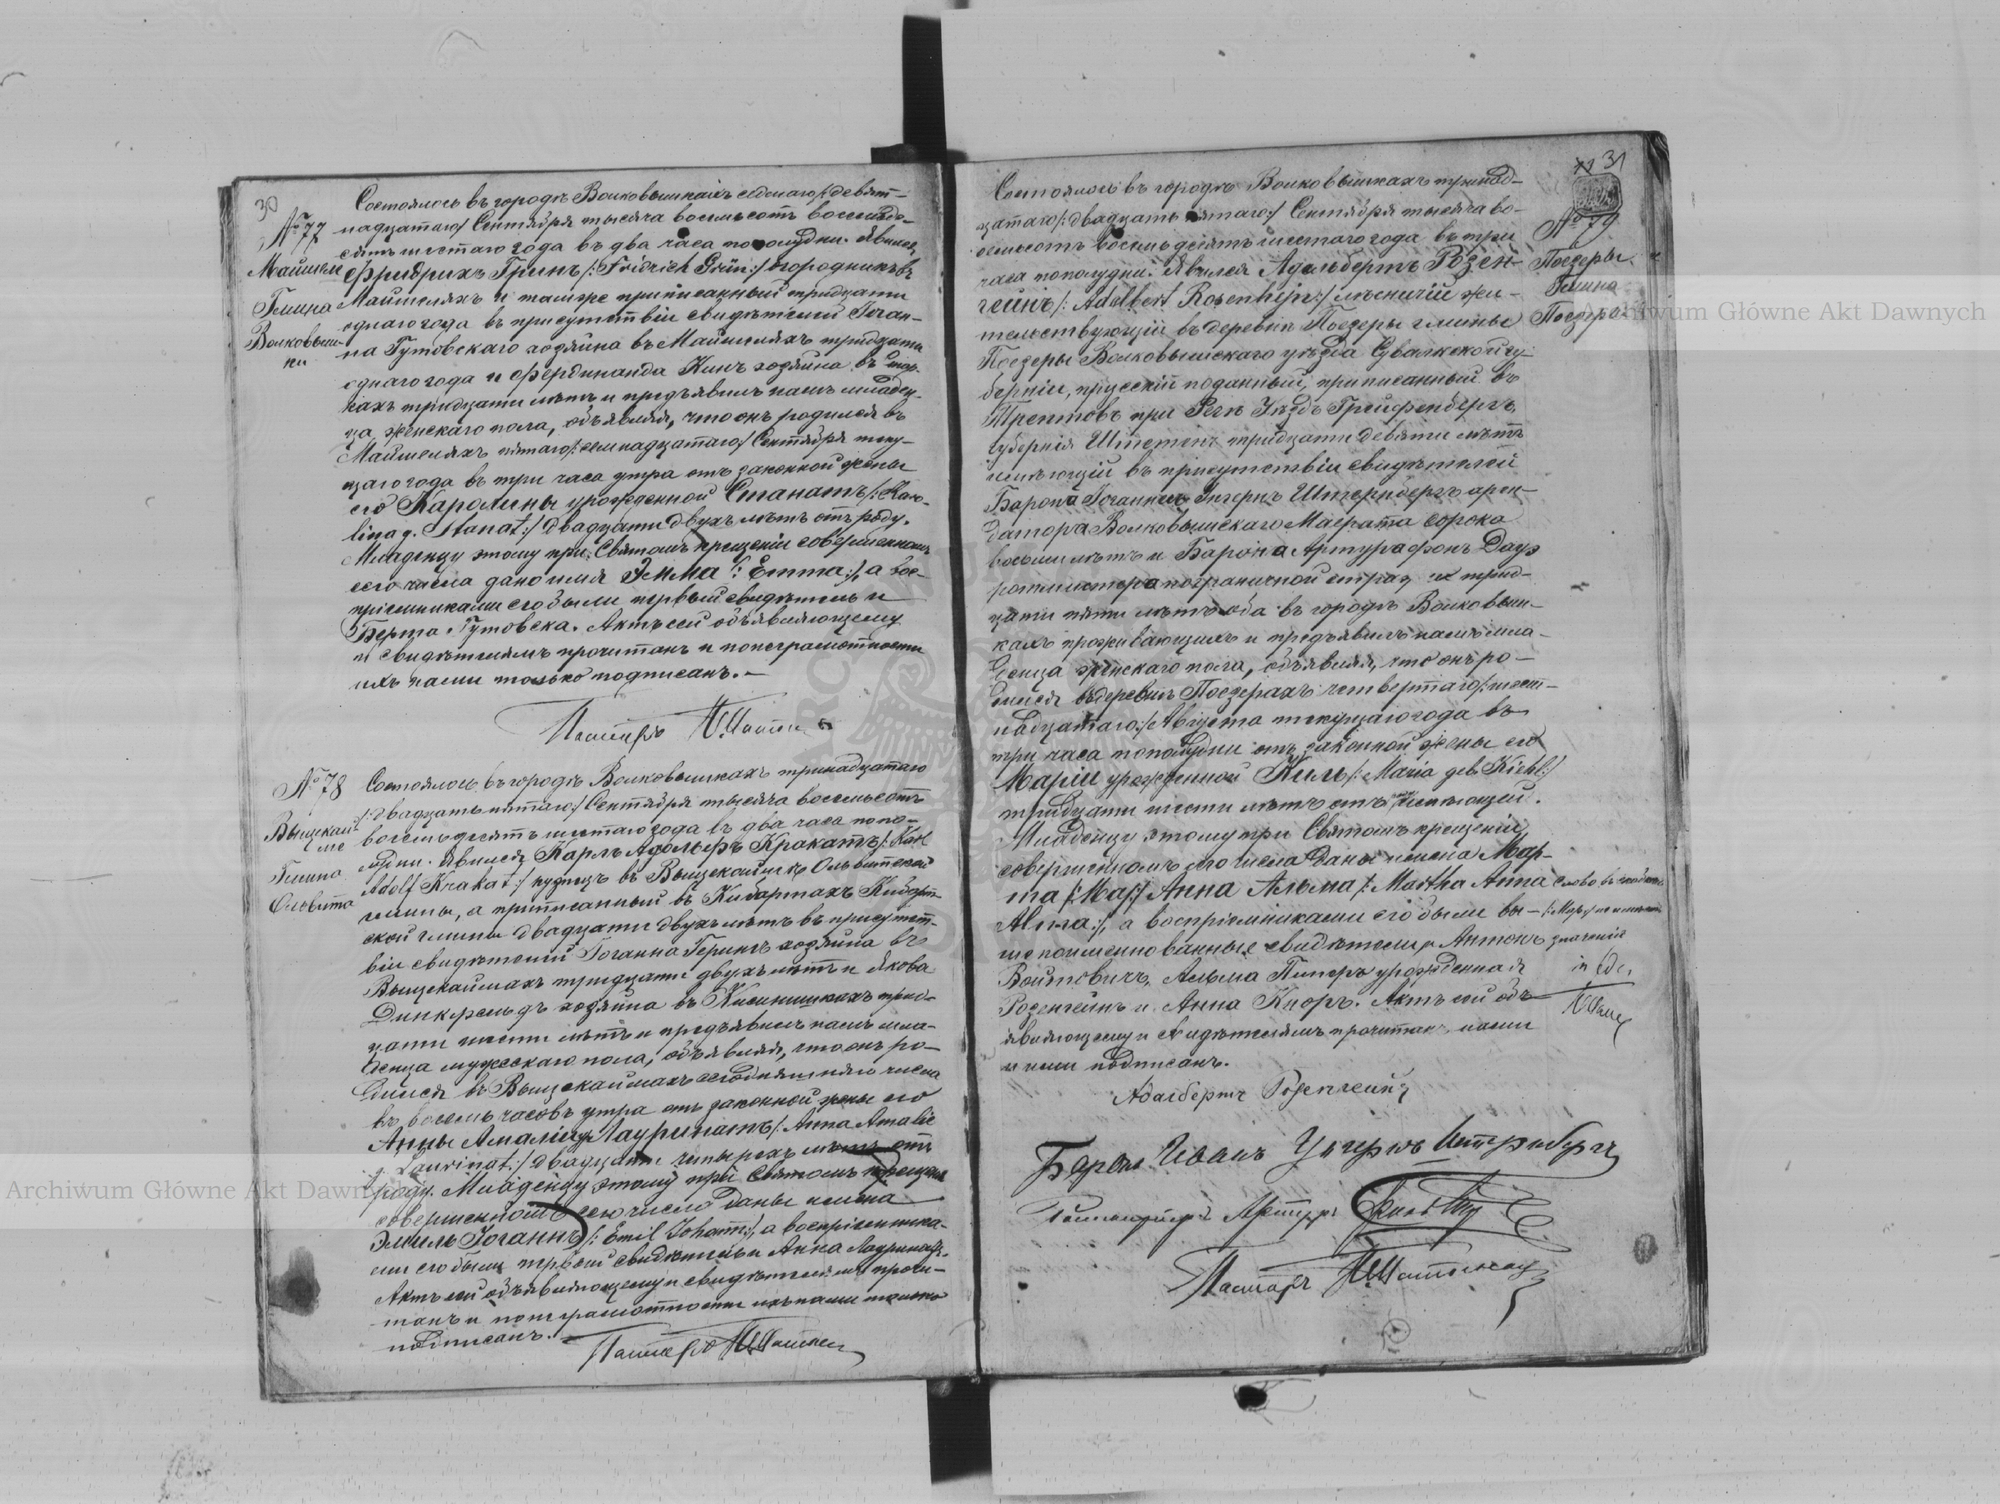 30
№ 77
Майшеле
Гмина
Волковыш-
ки
Состоялось въ городѣ Волковышкахъ седьмаго /:девят-
надцатаго:/ Сентября тысяча восемьсотъ восемьде-
сятъ шестаго года въ два часа пополудни. Явился
Фридрихъ Гринъ /:Fridrich Grün:/ огородникъ въ
Майшеляхъ и тамже приписанный тридцати
одного года въ присутствіи свидѣтелей Іоган-
на Гутовскаго хозяина въ Майшеляхъ тридцати
одного года и Фердинанда Кинъ хозяина въ
кахъ тридцати лѣтъ и предъявилъ намъ младен-
ца женскаго пола, объявляя, что онъ родился въ
Майшеляхъ пятаго /:семнадцатаго:/ Сентября теку-
щаго года въ три часа утра отъ законной жены
его Каролины урожденной Станатъ /:Karo-
lina g. Stanat:/ двадцати двухъ лѣтъ отъ роду.
Младенцу этому при Святомъ крещеніи совершенномъ
сего числа дано имя Эмма /:Emma:/, а вос-
пріемниками его были первый свидѣтель и
Берта Гутовска. Актъ сей объявляющему
и свидѣтелямъ прочитанъ и по неграмотности
ихъ нами только подписанъ.—
Пасторъ
№ 78
Выщекай-
ме
Гмина
Олевита
Состоялось въ городѣ Волковышкахъ тринадцатаго
/:двадцать пятаго:/ Сентября тысяча восемьсотъ
восемьдесятъ шестаго года въ два часа попо-
лудни. Явился Карлъ Адольфъ Кракатъ /:Karl
Adolf Krakat:/ кузнецъ въ Выщекаймѣ Ольвитской
гмины, а приписанный въ Кибартахъ Кибарт-
ской гмины двадцати двухъ лѣтъ въ присутст-
віи свидѣтелей Іоганна Герингъ хозяина въ
Выщекаймахъ тридцати двухъ лѣтъ и Якова
Динкфельдъ хозяина въ трид-
цати шести лѣтъ и предъявилъ намъ мла-
денца мужескаго пола, объявляя, что онъ ро-
дился въ Выщекаймахъ сегодняшняго числа
въ восемь часовъ утра отъ законной жены его
Анны Амаліи Лауринатъ /:Anna Amalie
g. Laurinat:/ двадцати четырехъ лѣтъ отъ
роду. Младенцу этому при Святомъ крещеніи
совершенномъ сего числа даны имена
Эмиль Іоганнъ /:Emil Johann:/, а воспріемника-
ми его были первый свидѣтель и Анна Лауринатъ.
Актъ сей объявляющему и свидѣтелямъ прочи-
танъ и по неграмотности ихъ нами только
подписанъ.—
Пасторъ
31
№ 79
Поезеры
Гмина
Поезеры
Состоялось въ городѣ Волковышкахъ тринад-
цатаго /:двадцать пятаго:/ Сентября тысяча во-
семьсотъ восемьдесятъ шестаго года въ три
часа пополудни. Явился Адельбертъ Розен-
гейнъ /:Adelbert Rosenhejn:/ лѣсничій жи-
тельствующій въ деревнѣ Поезеры гмины
Поезеры Волковышскаго уѣзда Сувалкской гу-
берніи, прусскій подданный, приписанный въ
Трептовъ при Регѣ Уѣздъ Грейфенбергъ,
Губернія Штетинъ тридцати девяти лѣтъ
имѣющій въ присутствіи свидѣтелей
Барона Іоганнъ Унгернъ Штернбергъ арен-
датора Волковышскаго Маерата сорока
восьми лѣтъ и Барона Артура фонъ Дауэ
ротмистера пограничной стражи трид-
цати пяти лѣтъ оба въ городѣ Волковыш-
кахъ проживающихъ и предъявилъ намъ мла-
денца женскаго пола, объявляя, что онъ ро-
дился въ деревнѣ Поезерахъ четвертаго /:шест-
надцатаго:/ Августа текущаго года въ
три часа пополудни отъ законной жены его
Маріи урожденной Киль /:Maria geb. Kiehl:/
тридцати шести лѣтъ отъ имѣющей.
Младенцу этому при Святомъ крещеніи
совершенномъ сего числа даны имена Мар-
та /:Мар:/ Анна Альма /:Martha Anna
Alma:/, а воспріемниками его были вы-
шепоименованные свидѣтели, Антонъ
Войтовичъ, Альма Пиперъ урожденная
Розенгейнъ и Анна Кноръ. Актъ сей объ-
являющему и свидѣтелямъ прочитанъ нами
и ими подписанъ.
слово въ скобкахъ
/:Мар:/ не имѣетъ
значенія
Адалбертъ Розенгейнъ
Баронъ Иванъ Унгернъ Штернбергъ
Ротмистръ Артуръ фонъ
Пасторъ
Archiwum Główne Akt Dawnych
Archiwum Główne Akt Dawnych